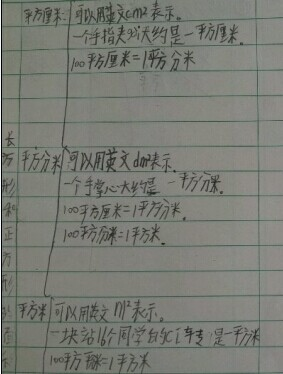 平方厘米:可以用英文cm²表示。
一个手指夹大约是一平方厘米.
100平方厘米=1平方分米
平方分米 可以用英文dm²表示.
一个手掌心大约是一平方分米.
100平方厘米=1平方分米.
100平方分米=1平方米.
平方米 可以用英文m²表示.
一块站16个同学的是一平方米
100平方分米=1平方米
长
方
形
和
正
方
形